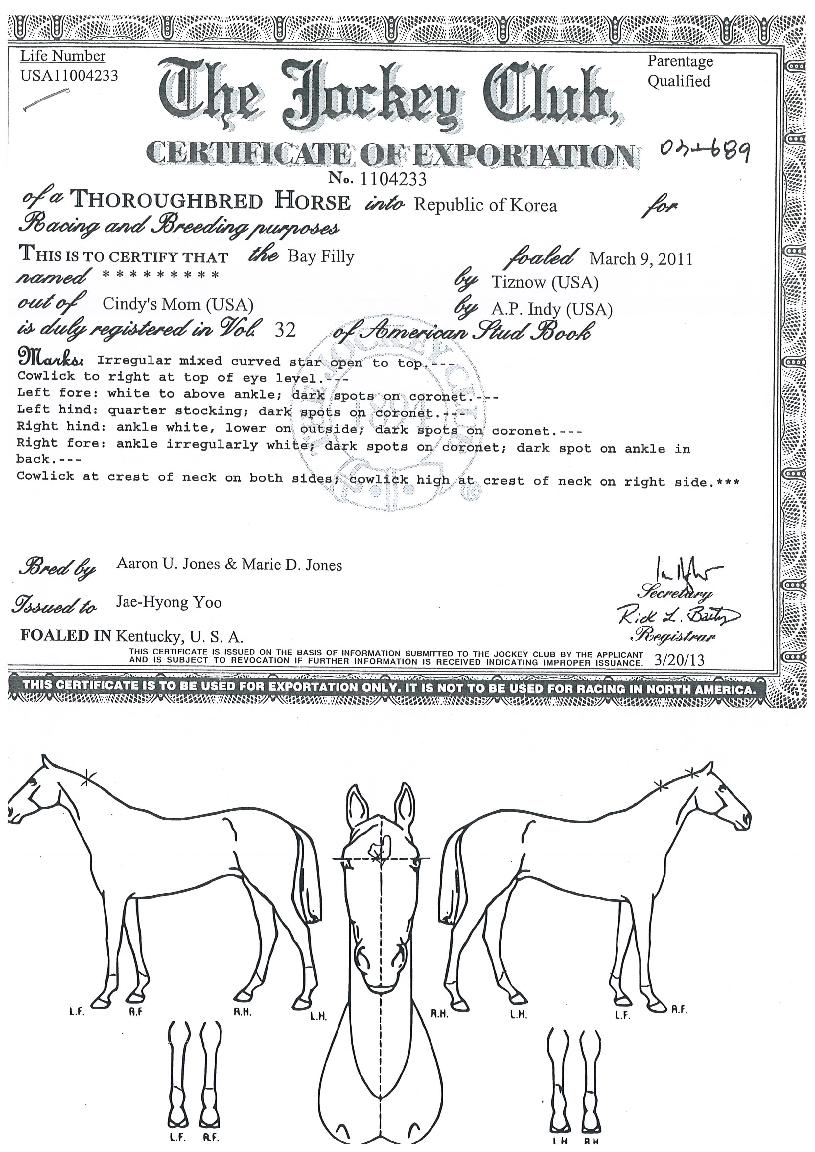 Life Number
USA11004233
Parentage
Qualified
The Jockey Club,
CERTIFICATE OF EXPORTATION
No. 1104233
of a THOROUGHBRED HORSE into Republic of Korea for
Racing and Breeding purposes
THIS IS TO CERTIFY THAT the Bay Filly foaled March 9, 2011
named * * * * * * * * * by Tiznow (USA)
out of Cindy's Mom (USA) by A.P. Indy (USA)
is duly registered in Vol. 32 of American Stud Book
Marks: Irregular mixed curved star open to top.---
Cowlick to right at top of eye level.---
Left fore: white to above ankle; dark spots on coronet.---
Left hind: quarter stocking; dark spots on coronet.---
Right hind: ankle white, lower on outside; dark spots on coronet.---
Right fore: ankle irregularly white; dark spots on coronet; dark spot on ankle in
back.---
Cowlick at crest of neck on both sides; cowlick high at crest of neck on right side.***
Bred by Aaron U. Jones & Marie D. Jones
Issued to Jae-Hyong Yoo
Secretary
Registrar
FOALED IN Kentucky, U. S. A.
THIS CERTIFICATE IS ISSUED ON THE BASIS OF INFORMATION SUBMITTED TO THE JOCKEY CLUB BY THE APPLICANT
AND IS SUBJECT TO REVOCATION IF FURTHER INFORMATION IS RECEIVED INDICATING IMPROPER ISSUANCE. 3/20/13
THIS CERTIFICATE IS TO BE USED FOR EXPORTATION ONLY. IT IS NOT TO BE USED FOR RACING IN NORTH AMERICA.
L.F. R.F R.H. L.H. R.H. L.H. L.F. R.F.
L.F. R.F. L H R H